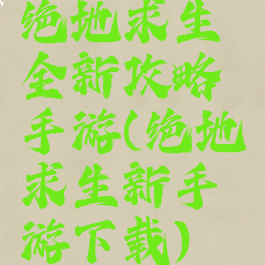 绝地求生
全新攻略
手游(绝地
求生新手
游下载)